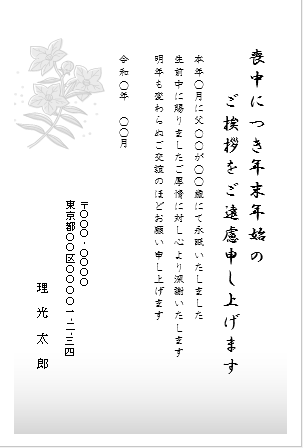 喪中につき年末年始の
ご挨拶をご遠慮申し上げます
本年〇月に父〇〇が〇〇歳にて永眠いたしました
生前中に賜りましたご厚情に対し心より深謝いたします
明年も変わらぬご交誼のほどお願い申し上げます
令和〇年 〇〇月
〒〇〇〇-〇〇〇〇
東京都〇〇区〇〇〇〇一-二-三四
理光太郎